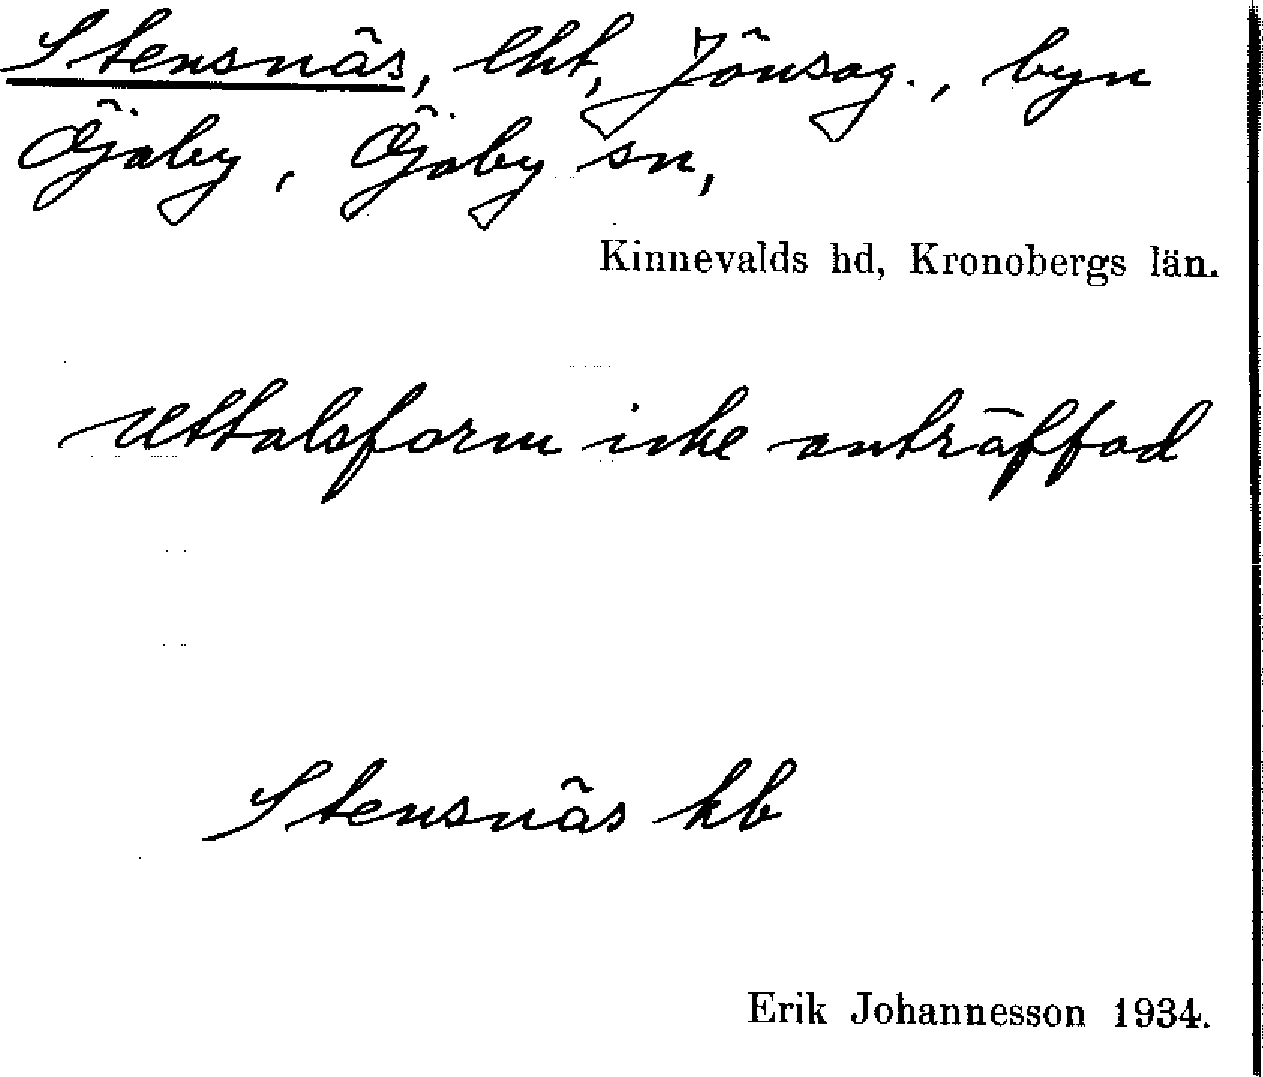 Stensnäs, lht, Jönsag., byn
Öjaby, Öjaby sn,
Kinnevalds hd, Kronobergs län.
Uttalsform icke anträffad
Stensnäs kb
Erik Johannesson 1934.